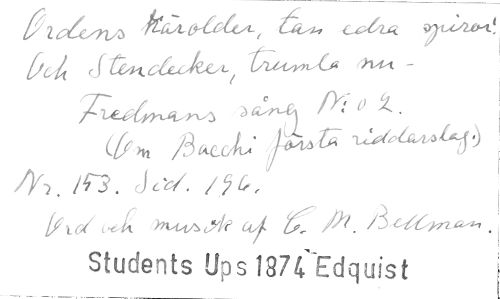 Ordens Härolder, tan edra spiror!
Och Stendecker, trumla nu -
Fredmans sång N:o 2.
(Om Bacchi första riddarslag.)
Nr. 153. Sid. 196.
Ord och musik af C. M. Bellman.
Students Ups 1874 Edquist